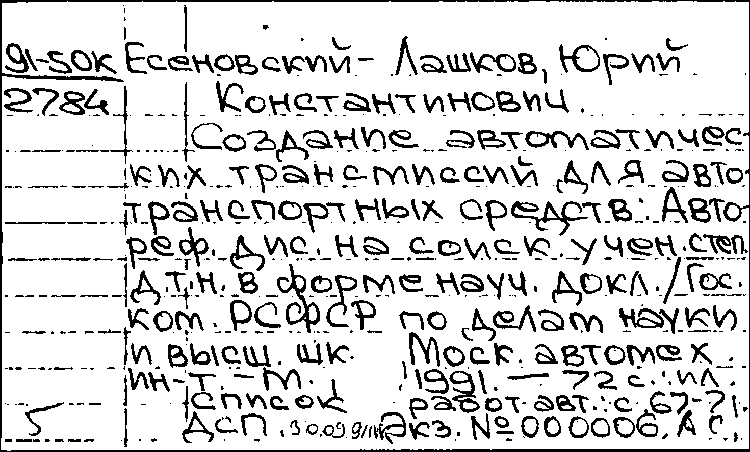 91-50к Есеновский-Лашков, Юрий
2784 Константинович.
Создание автоматичес-
ких трансмиссий для авто-
транспортных средств: Авто-
реф. дис. на соиск. учен. степ.
д.т.н. в форме науч. докл./Гос.
ком. РСФСР по делам науки
и высш. шк. Моск. автомех.
ин-т. - М., 1991. — 72 с.: ил.
Список работ авт.: с. 67-71.
5 ДСП. Экз. № 000006. А С